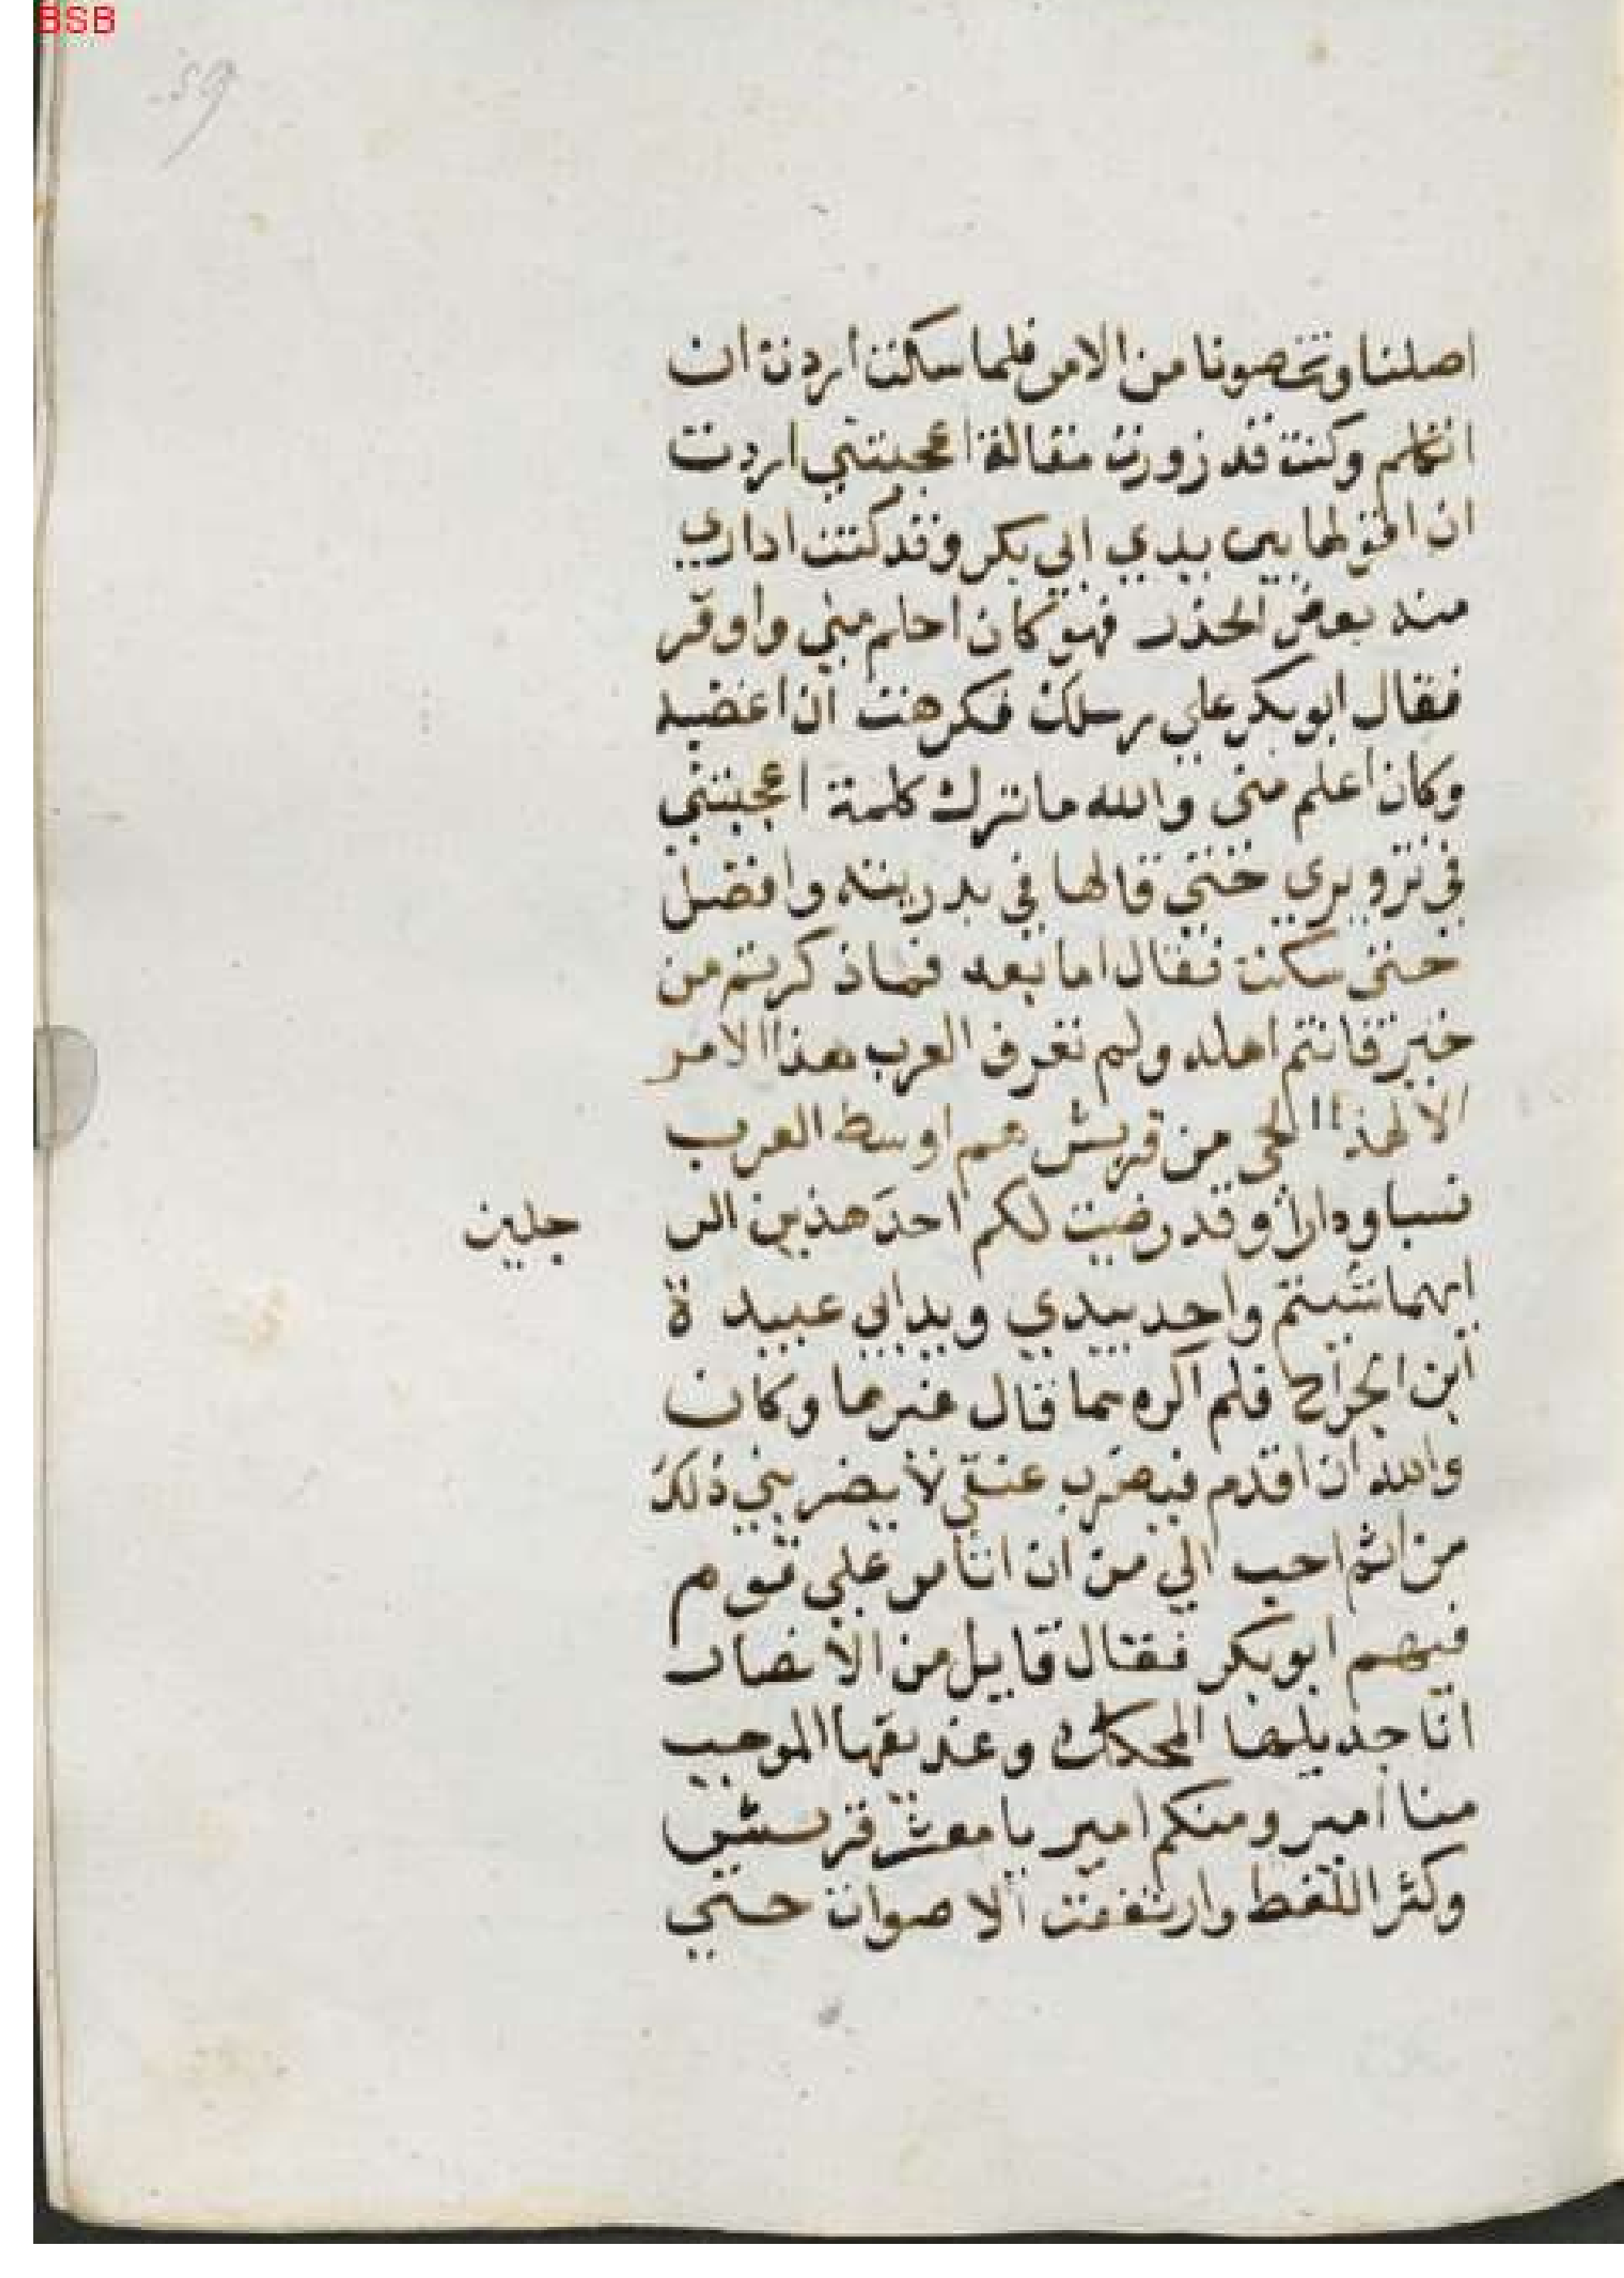 BSB
59
اصلنا وتحصونا من الامر فلما سكت اردت ان
اتكلم وكنت قد زورت مقالة اعجبتني اردت
ان اقولها بين يدي ابي بكر وقد كنت اداري
منه بعض الحذر فهو كان احلم مني واوقر
فقال ابو بكر علي رسلك فكرهت ان اغضبه
وكان اعلم مني والله ما ترك كلمة اعجبتني
في تزويري حتي قالها في بدريته وافضل
حتي سكت فقال اما بعد فما ذكرتم من
خير فانتم اهله ولم تعرف العرب هذا الامر
الا لهذا الحي من قريش هم اوسط العرب
نسبا ودارا وقد رضيت لكم احد هذين الر
جلين
ايهما شيتم واحد بيدي ويد ابي عبيد ة
ابن الجراح فلم اكره مما قال غيرها وكان
والله ان اقدم فيضرب عنقي لا يضربني ذلك
من اثم احب الي من ان اتامر علي قوم
فيهم ابو بكر فقال قايل من الانصار
انا جديلها المحكك وعذيقها الموجب
منا امير ومنكم امير يا معشر قريش
وكثر اللغط وارتفعت الاصوات حتي